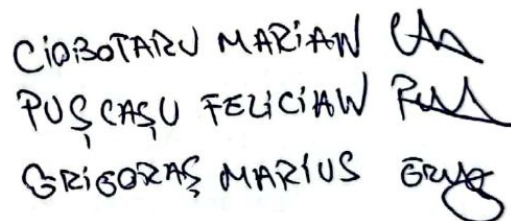 CIOBOTARU MARIAN
PUȘCAȘU FELICIAN
GRIGORAȘ MARIUS